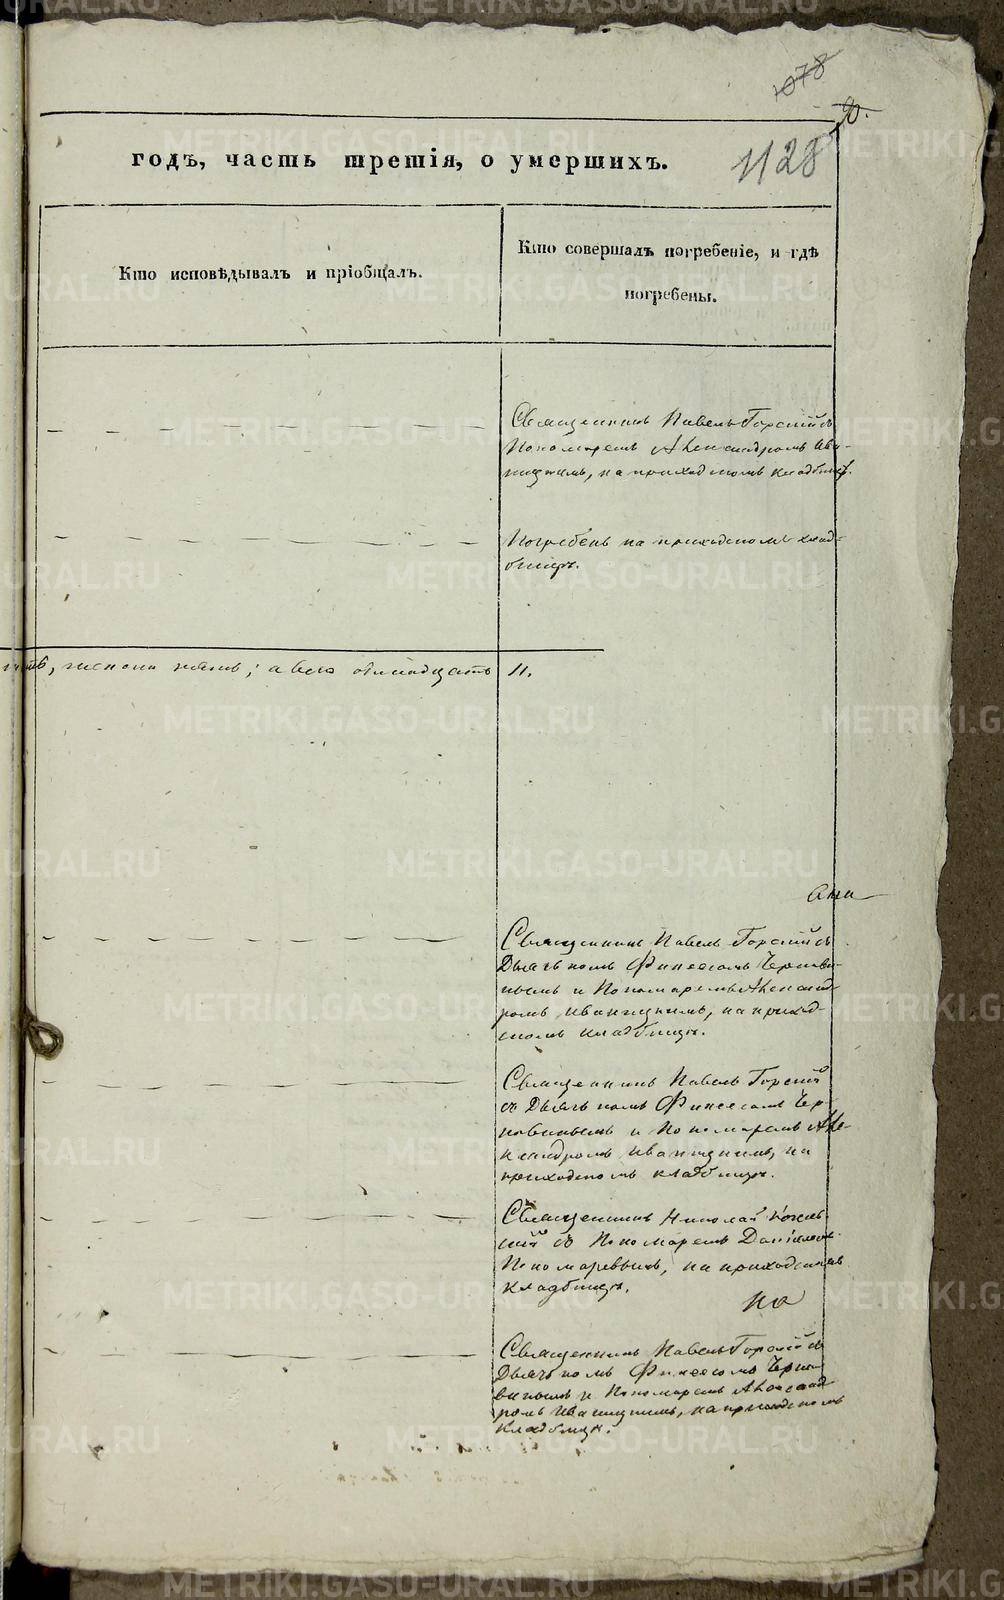 1078
1128
годъ, часть третія, о умершихъ.
Кто исповѣдывалъ и пріобщалъ.
Кто совершалъ погребеніе, и гдѣ
погребены.
Священникъ Павелъ Горскій съ
Пономаремъ Александромъ Ива-
ницкимъ, на приходскомъ кладбищѣ.
Погребенъ на приходскомъ клад-
бищѣ.
женска пять; а всего одиннадцать 11.
Священникъ Павелъ Горскій съ
Дьячкомъ Финеесомъ Черпави-
нымъ и Пономаремъ Александ-
ромъ Иваницкимъ, на приход-
скомъ кладбищѣ.
Священникъ Павелъ Горскій
съ Дьячкомъ Финеесомъ
и Пономаремъ Але-
ксандромъ Иваницкимъ, на
приходскомъ кладбищѣ.
Священникъ Николай
съ Пономаремъ Даніиломъ
Пономаревымъ, на приходскомъ
кладбищѣ.
Священникъ Павелъ Горскій съ
Дьячкомъ Финеесомъ
и Пономаремъ Александ-
ромъ Иваницкимъ, на приходскомъ
кладбищѣ.
METRIKI.GASO-URAL.RU